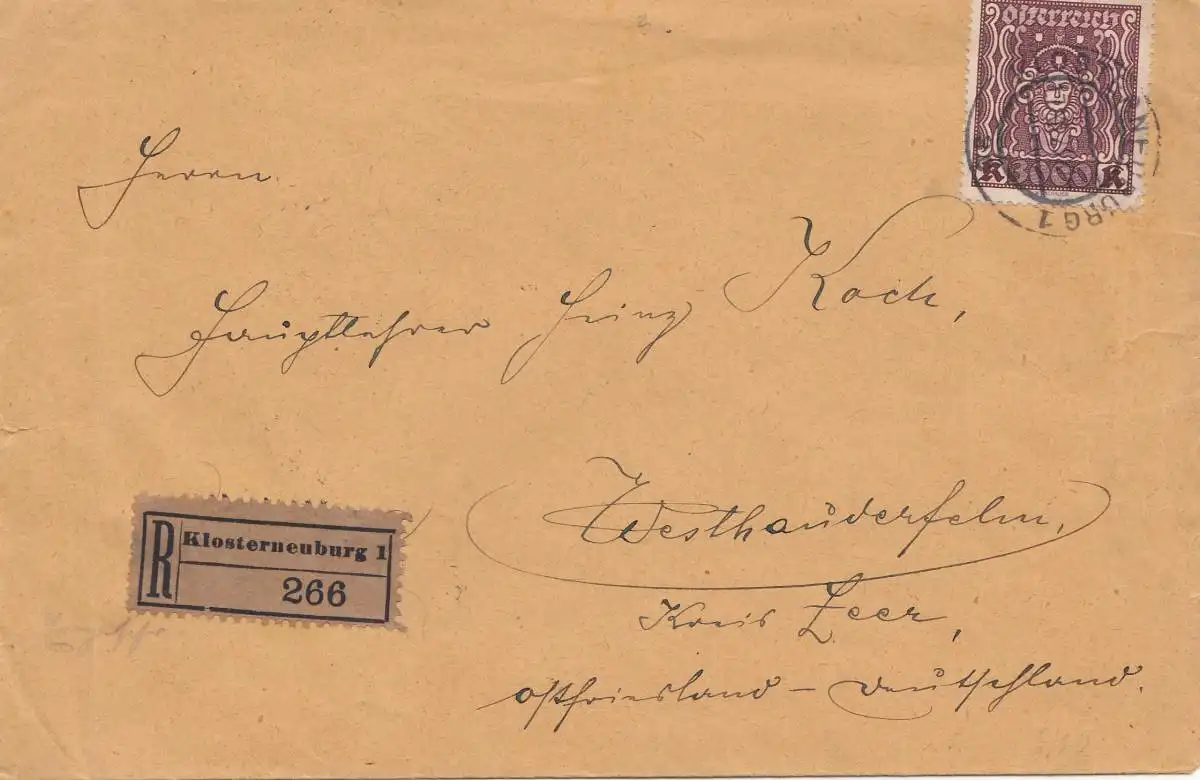 Österreich
K 3000 K
KLOSTERNEUBURG 1
Herrn
Hauptlehrer Heinz Koch,
Westhauderfehn,
Kreis Leer,
Ostfriesland – Deutschland.
R Klosterneuburg 1
266